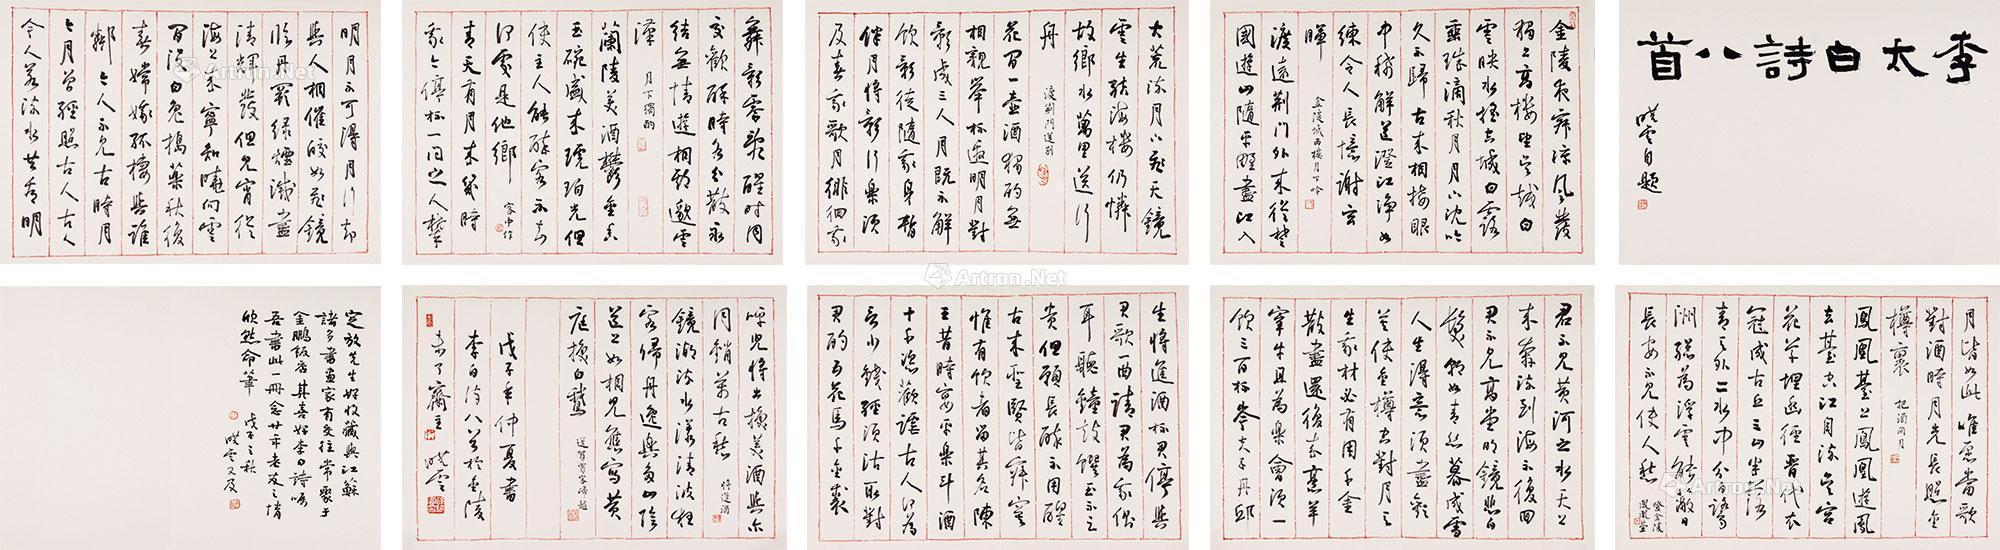 李太白詩八首
晓雲自題
金陵夜寂凉風發
獨上高樓望吳越白
雲映水摇空城白露
垂珠滴秋月月下沉吟
久不歸古来相接眼
中稀解道澄江净如
練令人長憶謝玄
暉 金陵城西樓月下吟
渡遠荆門外来從楚
國遊山隨平野盡江入
大荒流月下飛天鏡
雲生結海樓仍憐
故鄉水萬里送行
舟 渡荆門送别
花間一壺酒獨酌無
相親舉杯邀明月對
影成三人月既不解
飲影徒隨我身暫
伴月將影行樂須
及春我歌月徘徊我
舞影零亂醒时同
交歡醉時各分散永
結無情遊相期邈雲
漢 月下獨酌
蘭陵美酒鬱金香
玉碗盛来琥珀光但
使主人能醉客不知
何處是他鄉 客中作
青天有月来幾時
我今停杯一问之人攀
明月不可得月行却
與人相隨皎如飛鏡
臨丹闕绿煙滅盡
清輝發但見宵從
海上来寧知曉向雲
間没白兔搗藥秋復
春嫦娥孤棲與誰
鄰今人不見古時月
今月曾經照古人古人
今人若流水共看明
月皆如此唯願當歌
對酒時月光長照金
樽裏 把酒问月
鳳凰臺上鳳凰遊鳳
去臺空江自流吳宫
花草埋幽徑晉代衣
冠成古丘三山半落
青天外二水中分白鷺
洲總為浮雲能蔽日
長安不見使人愁 登金陵鳳凰臺
君不見黄河之水天上
来奔流到海不復回
君不見高堂明鏡悲白
髮朝如青丝暮成雪
人生得意須盡歡
莫使金樽空對月天
生我材必有用千金
散盡還復来烹羊
宰牛且為樂會須一
飲三百杯岑夫子丹邱
生將進酒杯莫停與
君歌一曲請君為我倾
耳聽鐘鼓饌玉不足
贵但願長醉不用醒
古来聖賢皆寂寞
惟有飲者留其名陳
王昔時宴平樂斗酒
十千恣歡謔主人何為
言少錢徑須沽取對
君酌五花馬千金裘
呼兒將出换美酒與爾
同銷萬古愁 將進酒
鏡湖流水漾清波狂
客歸舟逸興多山陰
道士如相見應寫黄
庭换白鵝 送賀賓客歸越
戊子年仲夏書
李白诗八首於金陵
未了齋主 晓雲
定放先生好收藏與江蘇
諸多書畫家有交往常聚于
金鵬飯店其喜好李白詩嘱
吾書此一册念廿年老友之情
欣然命筆 戊子之秋
晓雲又及
Artron.Net